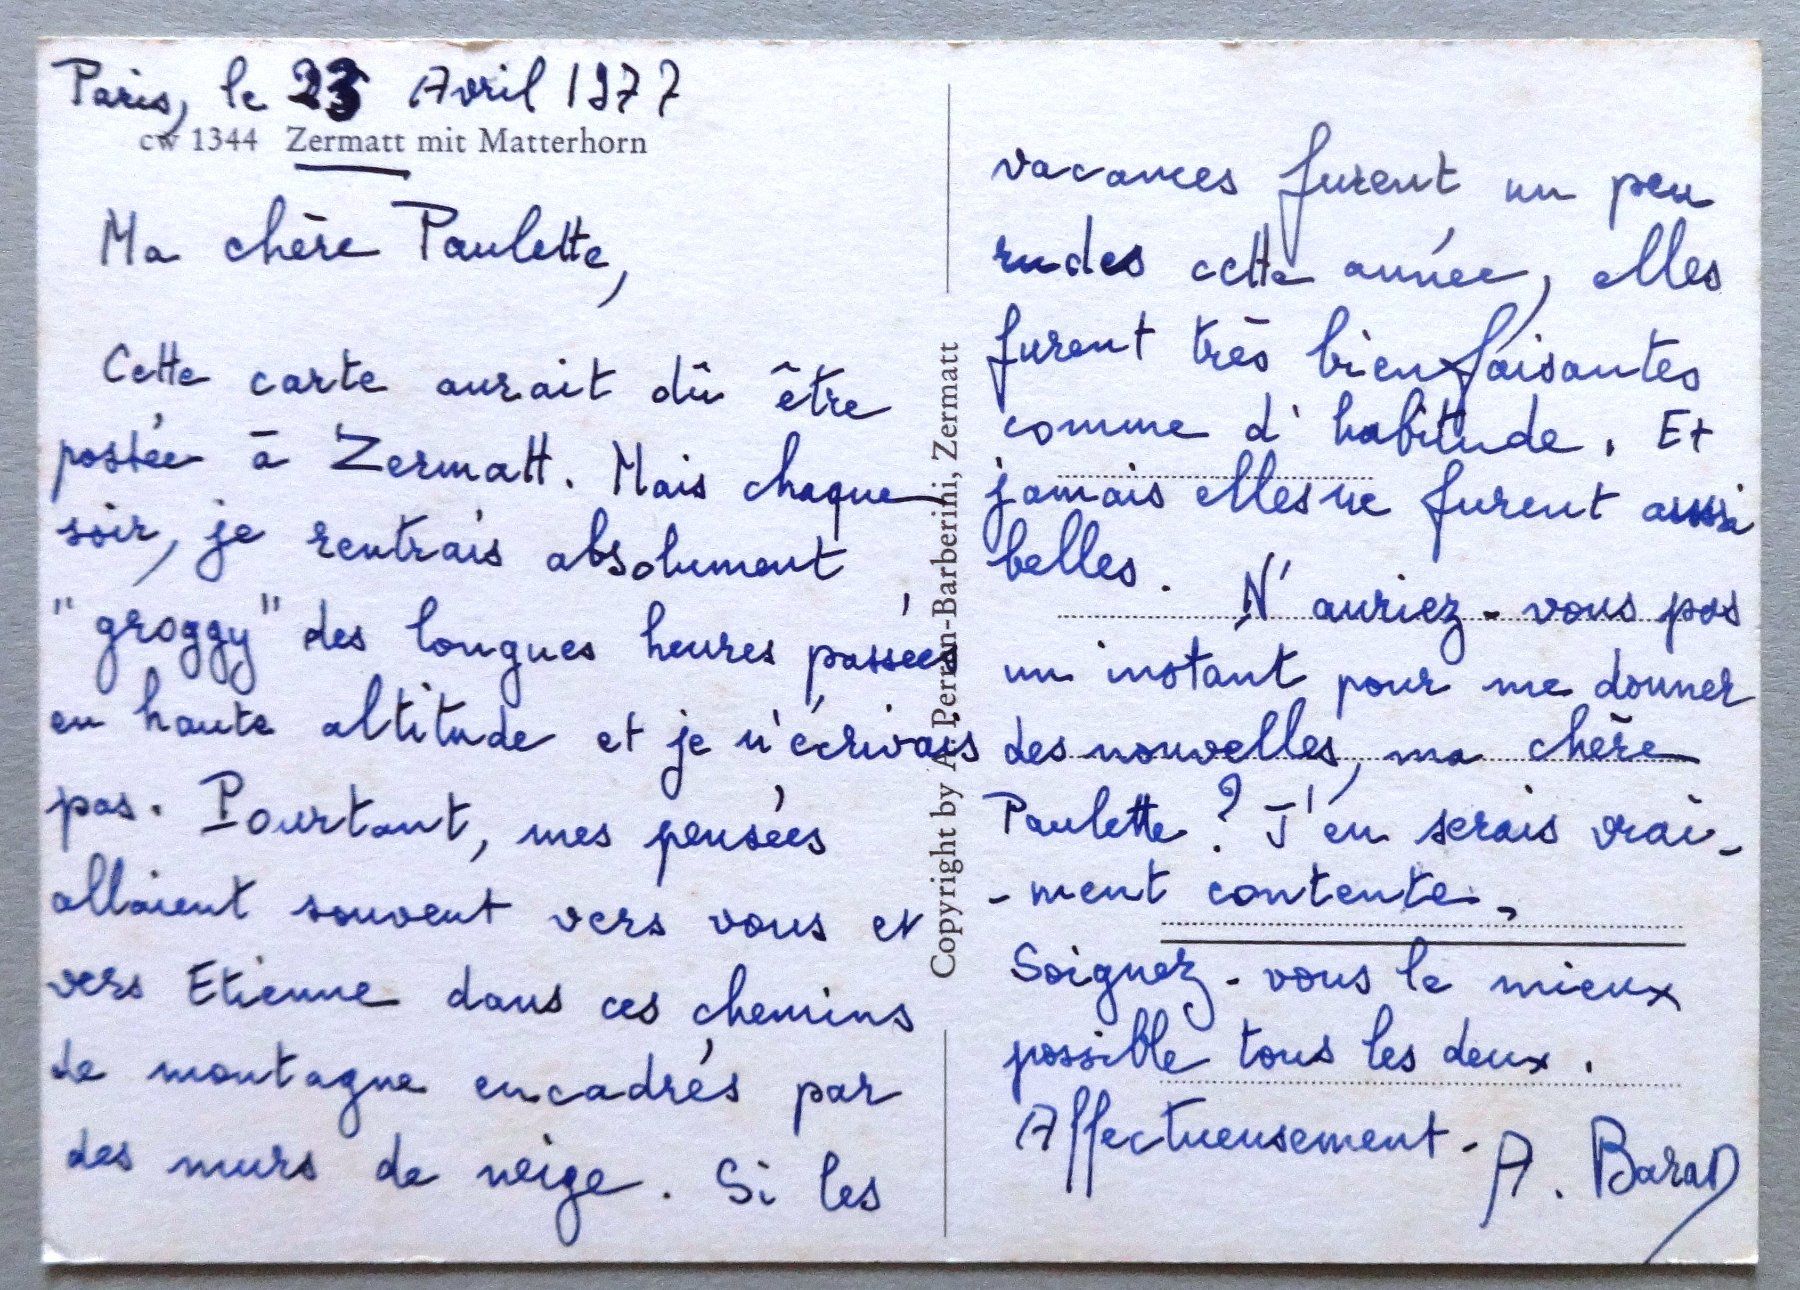 Paris, le 23 Avril 1977
cw 1344 Zermatt mit Matterhorn
Ma chère Paulette,
Cette carte aurait dû être
postée à Zermatt. Mais chaque
soir, je rentrais absolument
"groggy" des longues heures passées
en haute altitude et je n'écrivais
pas. Pourtant, mes pensées
allaient souvent vers vous et
vers Etienne dans ces chemins
de montagne encadrés par
des murs de neige. Si les
Copyright by A. Perren-Barberini, Zermatt
vacances furent un peu
rudes cette année, elles
furent très bienfaisantes
comme d'habitude. Et
jamais elles ne furent aussi
belles. N'auriez-vous pas
un instant pour me donner
des nouvelles, ma chère
Paulette ? J'en serais vrai-
-ment contente.
Soignez-vous le mieux
possible tous les deux.
Affectueusement - A. Baran